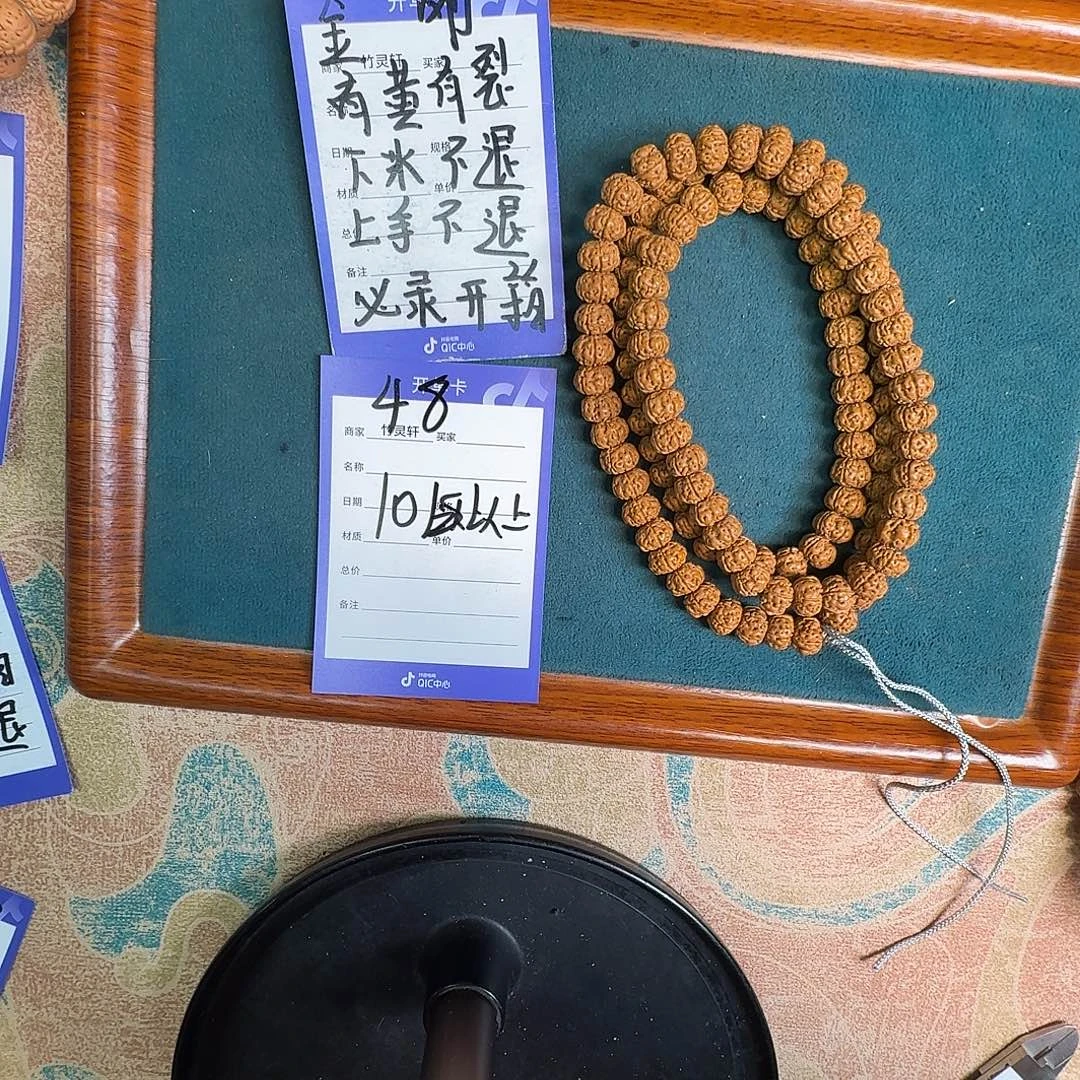 金刚
商家 竹灵轩 买家
有黄有裂
日期 规格
下水不退
材质 单价
上手不退
备注
必录开箱
抖音电商
QIC中心
48
卡
商家 竹灵轩 买家
名称
日期
10 以上
材质 单价
总价
备注
抖音电商
QIC中心
退